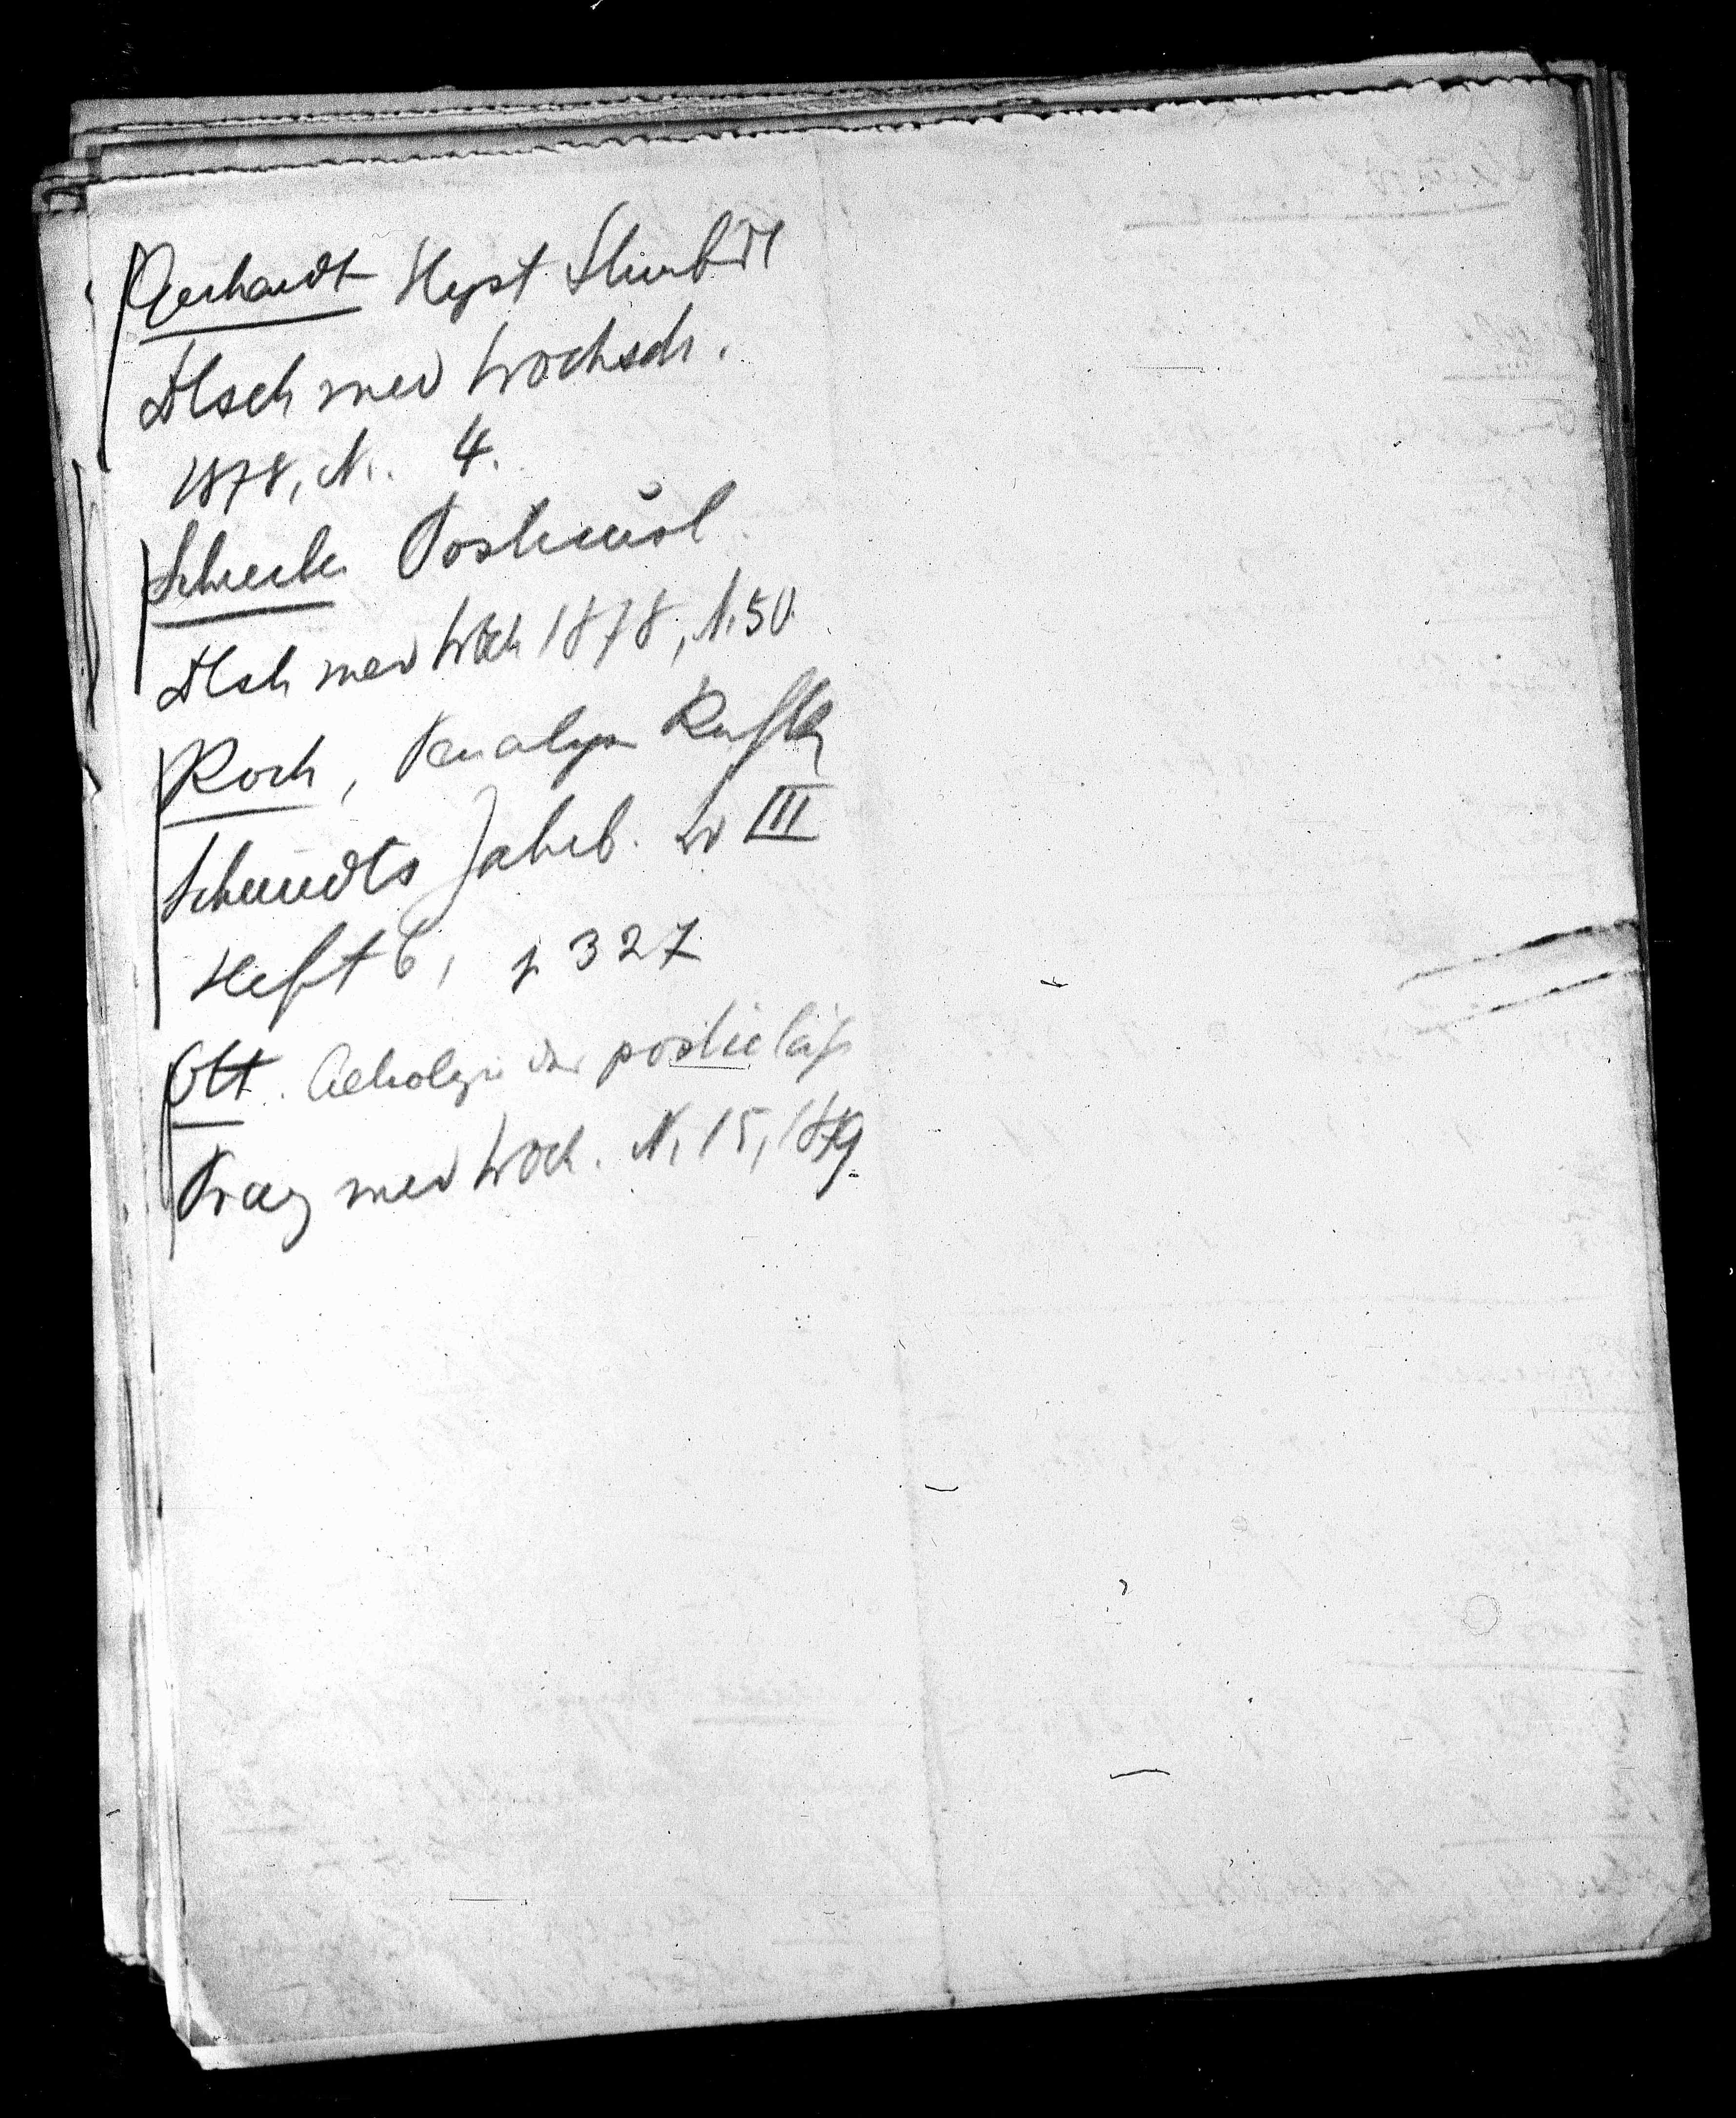 Gerhardt Hyst Stimb
Dtsch med Wochsch.
1878, N. 4.
Schech Posticusl.
Dtsch med Woch 1878, N. 50.
Koch, Paralyse
Schmidts Jahrb. Bd III
Heft 6, p 327
Ott. Aetiologie der posticusläh
Prag med Woch. N. 15, 1879.